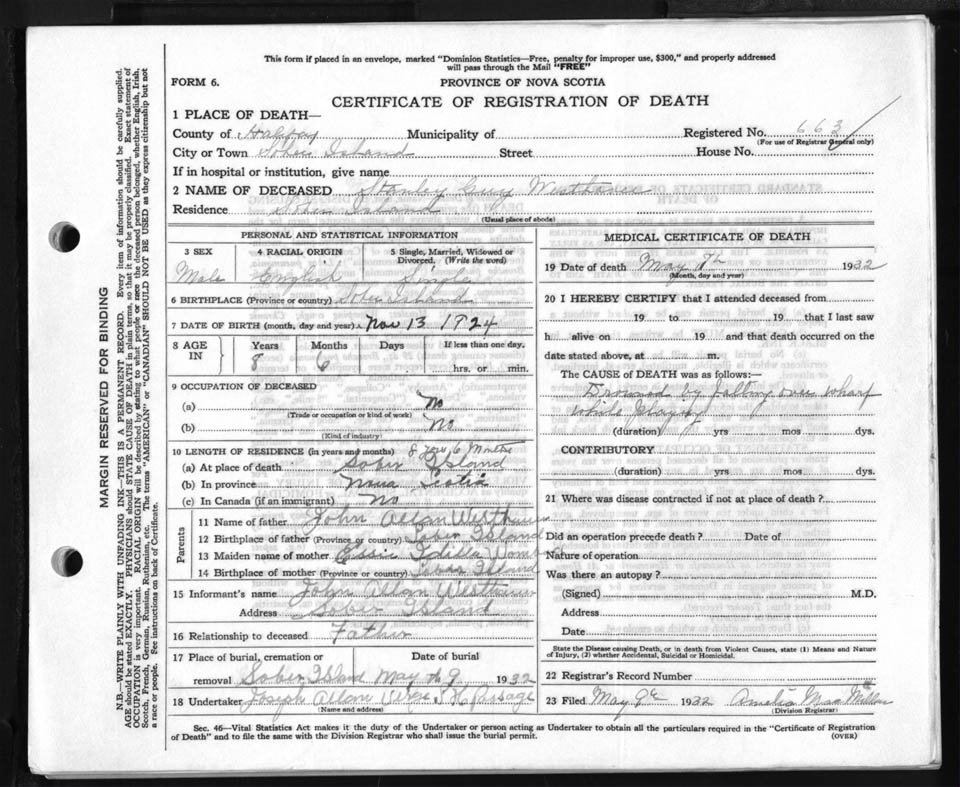 This form if placed in an envelope, marked "Dominion Statistics—Free, penalty for improper use, $300," and properly addressed
will pass through the Mail "FREE"
FORM 6.
PROVINCE OF NOVA SCOTIA
CERTIFICATE OF REGISTRATION OF DEATH
1 PLACE OF DEATH—
County of Halifax Municipality of Registered No. 663
(For use of Registrar General only)
City or Town Sober Island Street House No.
If in hospital or institution, give name
2 NAME OF DECEASED Stanley Westhaver
Residence Sober Island
(Usual place of abode)
PERSONAL AND STATISTICAL INFORMATION
3 SEX 4 RACIAL ORIGIN 5 Single, Married, Widowed or
Divorced. (Write the word)
Male English Single
6 BIRTHPLACE (Province or country) Sober Island
7 DATE OF BIRTH (month, day and year) Nov 13 1924
8 AGE IN Years Months Days If less than one day.
8 6 hrs. or min.
9 OCCUPATION OF DECEASED
(a) No
(Trade or occupation or kind of work)
(b) No
(Kind of industry)
10 LENGTH OF RESIDENCE (in years and months) 8 yrs 6 Months
(a) At place of death Sober Island
(b) In province Nova Scotia
(c) In Canada (if an immigrant) No
Parents
11 Name of father John Allan Westhaver
12 Birthplace of father (Province or country) Sober Island
13 Maiden name of mother Essie Idilla
14 Birthplace of mother (Province or country) Sober Island
15 Informant's name John Allan Westhaver
Address Sober Island
16 Relationship to deceased Father
17 Place of burial, cremation or Date of burial
removal Sober Island May 9 1932
18 Undertaker Joseph Allan Passage
(Name and address)
MEDICAL CERTIFICATE OF DEATH
19 Date of death May 1932
(Month, day and year)
20 I HEREBY CERTIFY that I attended deceased from
19 to 19 that I last saw
h alive on 19 and that death occurred on the
date stated above, at m.
The CAUSE of DEATH was as follows:—
Drowned by falling over wharf
while playing
(duration) yrs mos dys.
CONTRIBUTORY
(duration) yrs mos dys.
21 Where was disease contracted if not at place of death?
Did an operation precede death? Date of
Nature of operation
Was there an autopsy?
(Signed) M.D.
Address
Date
State the Disease causing Death, or in death from Violent Causes, state (1) Means and Nature
of Injury, (2) whether Accidental, Suicidal or Homicidal.
22 Registrar's Record Number
23 Filed May 9th 1932 Amelia MacMillan
(Division Registrar)
Sec. 46—Vital Statistics Act makes it the duty of the Undertaker or person acting as Undertaker to obtain all the particulars required in the "Certificate of Registration
of Death" and to file the same with the Division Registrar who shall issue the burial permit.
(OVER)
MARGIN RESERVED FOR BINDING
N.B.—WRITE PLAINLY WITH UNFADING INK—THIS IS A PERMANENT RECORD. Every item of information should be carefully supplied.
AGE should be stated EXACTLY. PHYSICIANS should STATE CAUSE OF DEATH in plain terms, so that it may be properly classified. Exact statement of
OCCUPATION is very important. RACIAL ORIGIN will be described by stating to what people or race the deceased person belonged, whether English, Irish,
Scotch, French, German, Russian, Ruthenian, etc. The terms "AMERICAN" or "CANADIAN" SHOULD NOT BE USED as they express citizenship but not
a race or people. See instructions on back of Certificate.